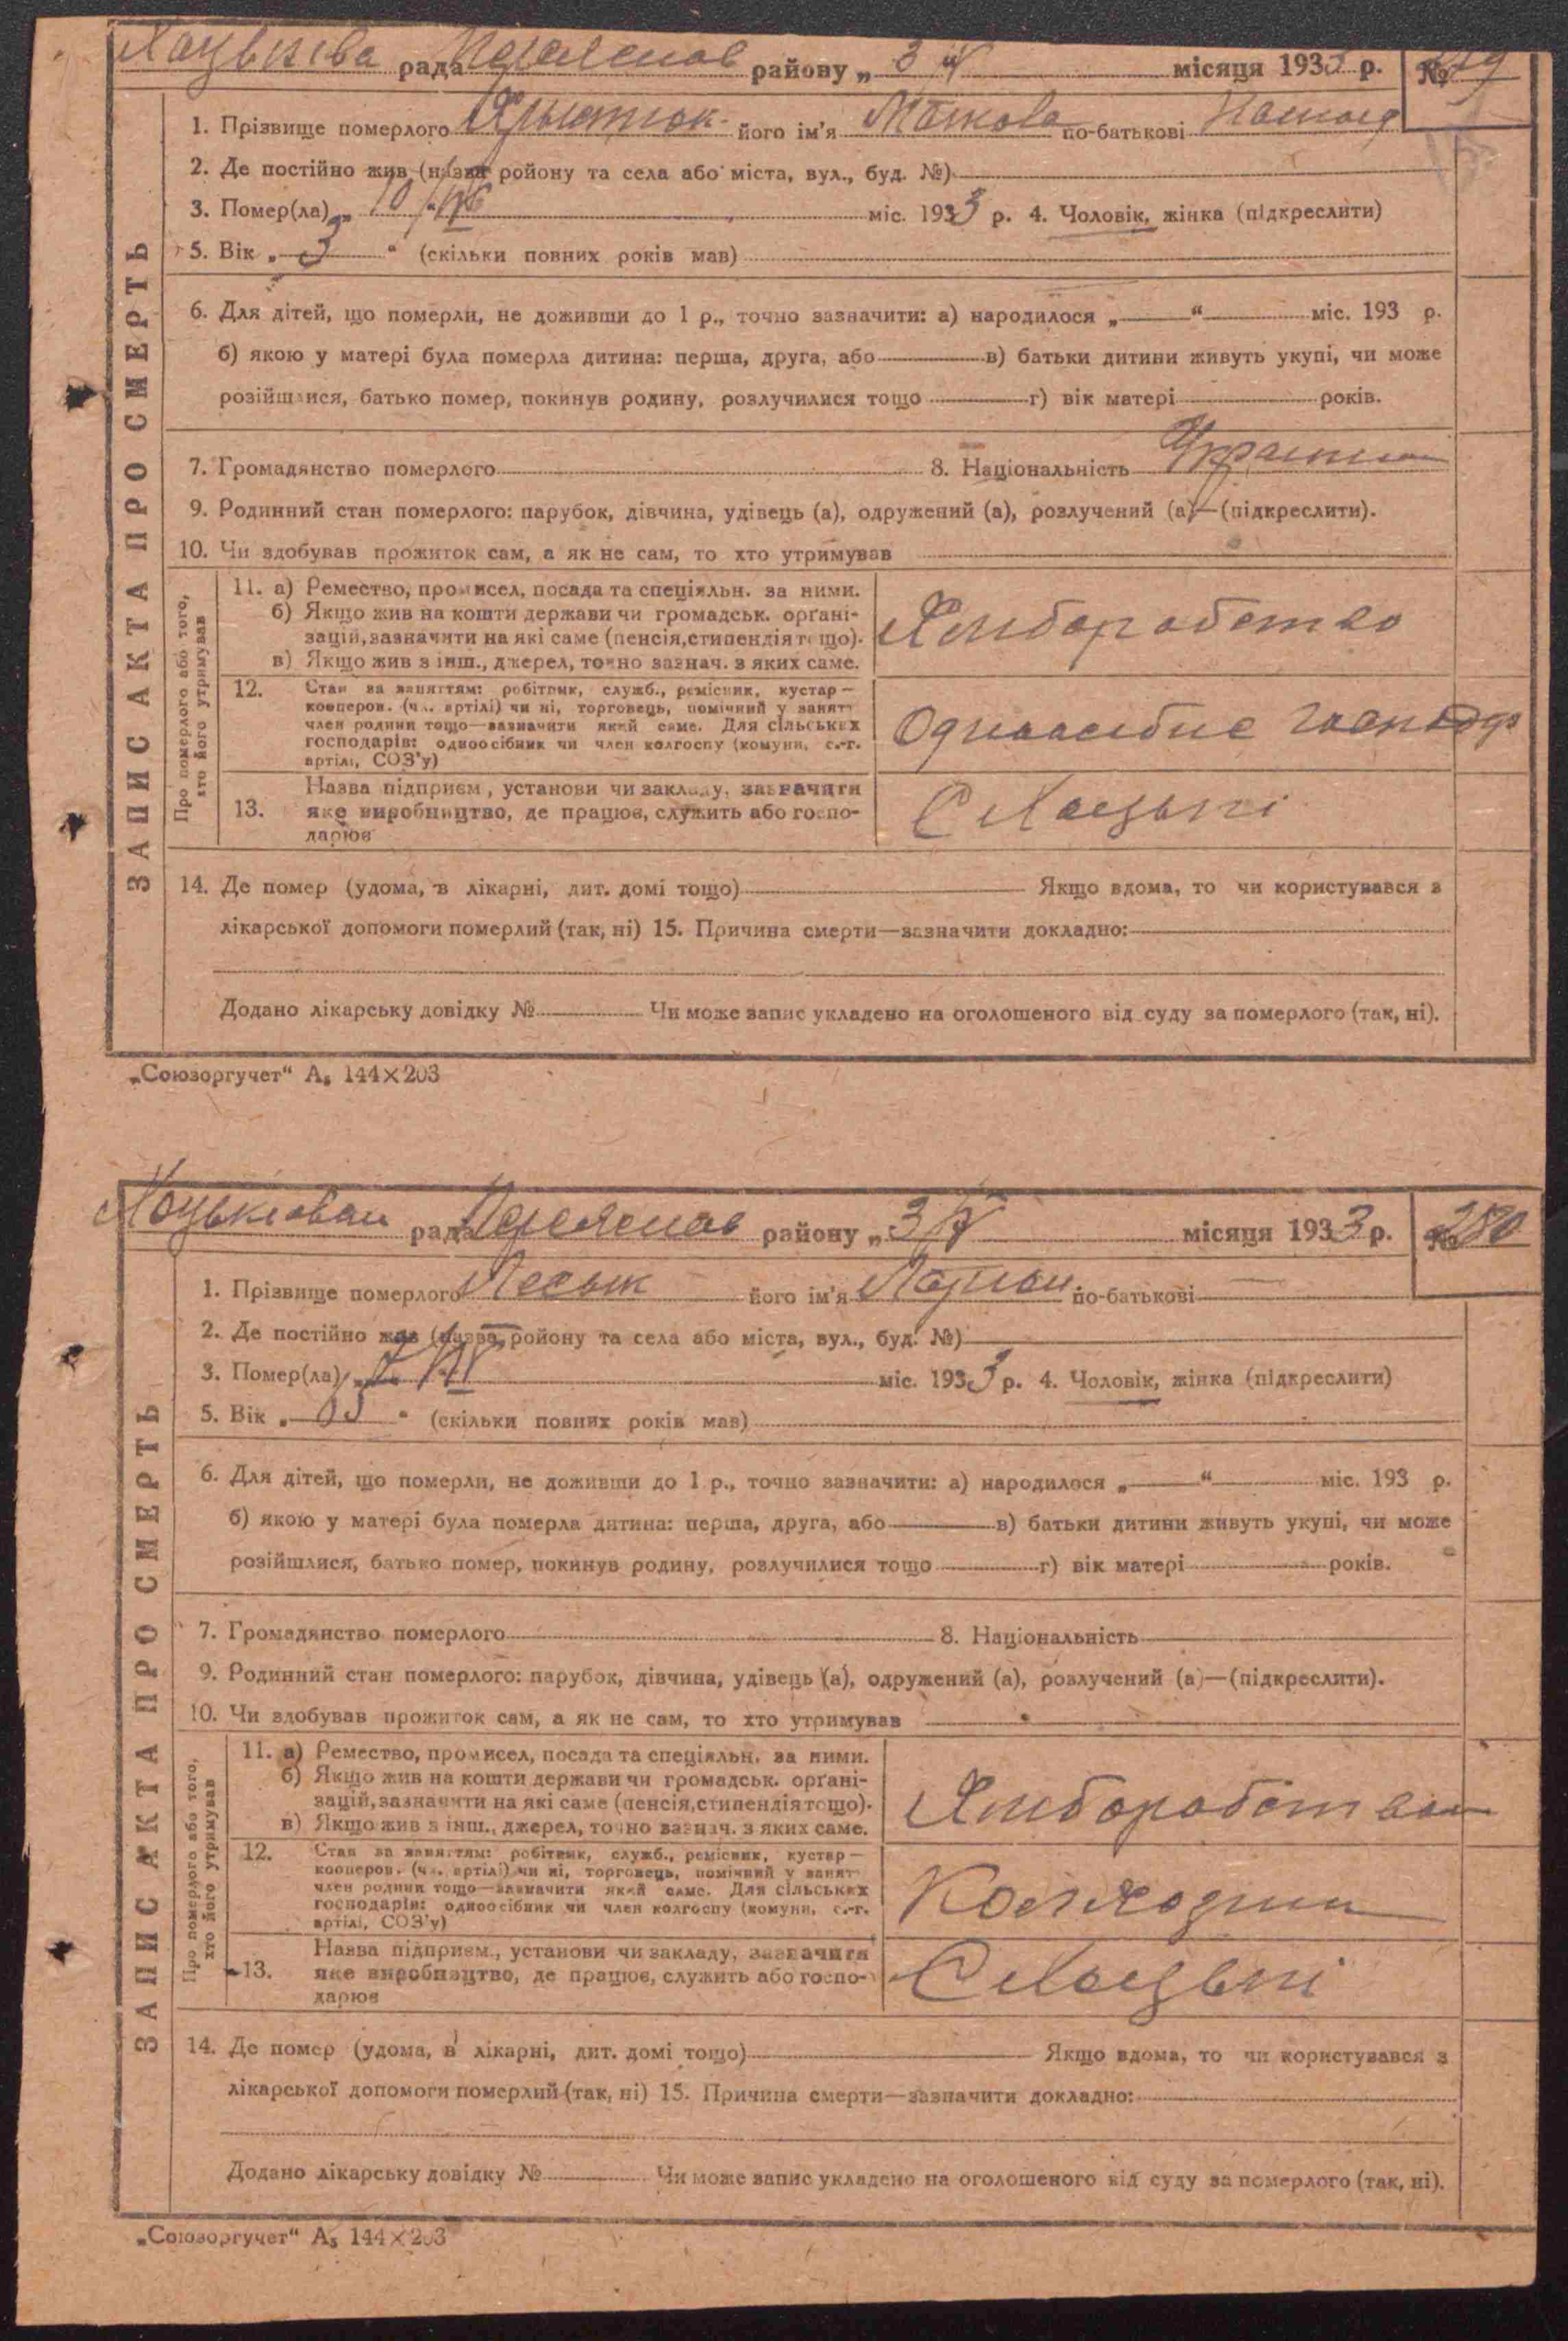 рада району „ 3 IV місяця 1933 р. №
1. Прізвище померлого його ім'я по-батькові
2. Де постійно жив (назва ройону та села або міста, вул., буд. №)
3. Помер(ла) „ 10 міс. 1933 р. 4. Чоловік, жінка (підкреслити)
5. Вік „ 3 “ (скільки повних років мав)
6. Для дітей, що померли, не доживши до 1 р., точно зазначити: а) народилося „ “ міс. 193 р.
б) якою у матері була померла дитина: перша, друга, або в) батьки дитини живуть укупі, чи може
розійшлися, батько помер, покинув родину, розлучилися тощо г) вік матері років.
7. Громадянство померлого 8. Національність
9. Родинний стан померлого: парубок, дівчина, удівець (а), одружений (а), розлучений (а)—(підкреслити).
10. Чи здобував прожиток сам, а як не сам, то хто утримував
ЗАПИС АКТА ПРО СМЕРТЬ
Про померлого або того,
хто його утримував
11. а) Ремество, промисел, посада та спеціяльн. за ними.
б) Якщо жив на кошти держави чи громадськ. орґані-
зацій, зазначити на які саме (пенсія, стипендія тощо).
в) Якщо жив з інш., джерел, точно зазнач. з яких саме.
Хліборобство
12. Стан за заняттям: робітник, служб., ремісник, кустар—
кооперов. (чл. артілі) чи ні, торговець, помічний у занятт
член родини тощо—зазначити який саме. Для сільських
господарів: одноосібник чи член колгоспу (комуни, с.-г.
артілі, СОЗ'у)
13. Назва підприєм, установи чи закладу, зазначити
яке виробництво, де працює, служить або госпо-
дарює
14. Де помер (удома, в лікарні, дит. домі тощо) Якщо вдома, то чи користувався з
лікарської допомоги померлий (так, ні) 15. Причина смерти—зазначити докладно:
Додано лікарську довідку № Чи може запис укладено на оголошеного від суду за померлого (так, ні).
„Союзоргучет“ А₅ 144×203
рада району „ 3 IV місяця 1933 р. № 280
1. Прізвище померлого його ім'я по-батькові
2. Де постійно жив (назва ройону та села або міста, вул., буд. №)
3. Помер(ла) „ міс. 1933 р. 4. Чоловік, жінка (підкреслити)
5. Вік „ “ (скільки повних років мав)
6. Для дітей, що померли, не доживши до 1 р., точно зазначити: а) народилося „ “ міс. 193 р.
б) якою у матері була померла дитина: перша, друга, або в) батьки дитини живуть укупі, чи може
розійшлися, батько помер, покинув родину, розлучилися тощо г) вік матері років.
7. Громадянство померлого 8. Національність
9. Родинний стан померлого: парубок, дівчина, удівець (а), одружений (а), розлучений (а)—(підкреслити).
10. Чи здобував прожиток сам, а як не сам, то хто утримував
ЗАПИС АКТА ПРО СМЕРТЬ
Про померлого або того,
хто його утримував
11. а) Ремество, промисел, посада та спеціяльн. за ними.
б) Якщо жив на кошти держави чи громадськ. орґані-
зацій, зазначити на які саме (пенсія, стипендія тощо).
в) Якщо жив з інш., джерел, точно зазнач. з яких саме.
12. Стан за заняттям: робітник, служб., ремісник, кустар—
кооперов. (чл. артілі) чи ні, торговець, помічний у занятт
член родини тощо—зазначити який саме. Для сільських
господарів: одноосібник чи член колгоспу (комуни, с.-г.
артілі, СОЗ'у)
13. Назва підприєм., установи чи закладу, зазначити
яке виробництво, де працює, служить або госпо-
дарює
14. Де помер (удома, в лікарні, дит. домі тощо) Якщо вдома, то чи користувався з
лікарської допомоги померлий (так, ні) 15. Причина смерти—зазначити докладно:
Додано лікарську довідку № Чи може запис укладено на оголошеного від суду за померлого (так, ні).
„Союзоргучет“ А₅ 144×203